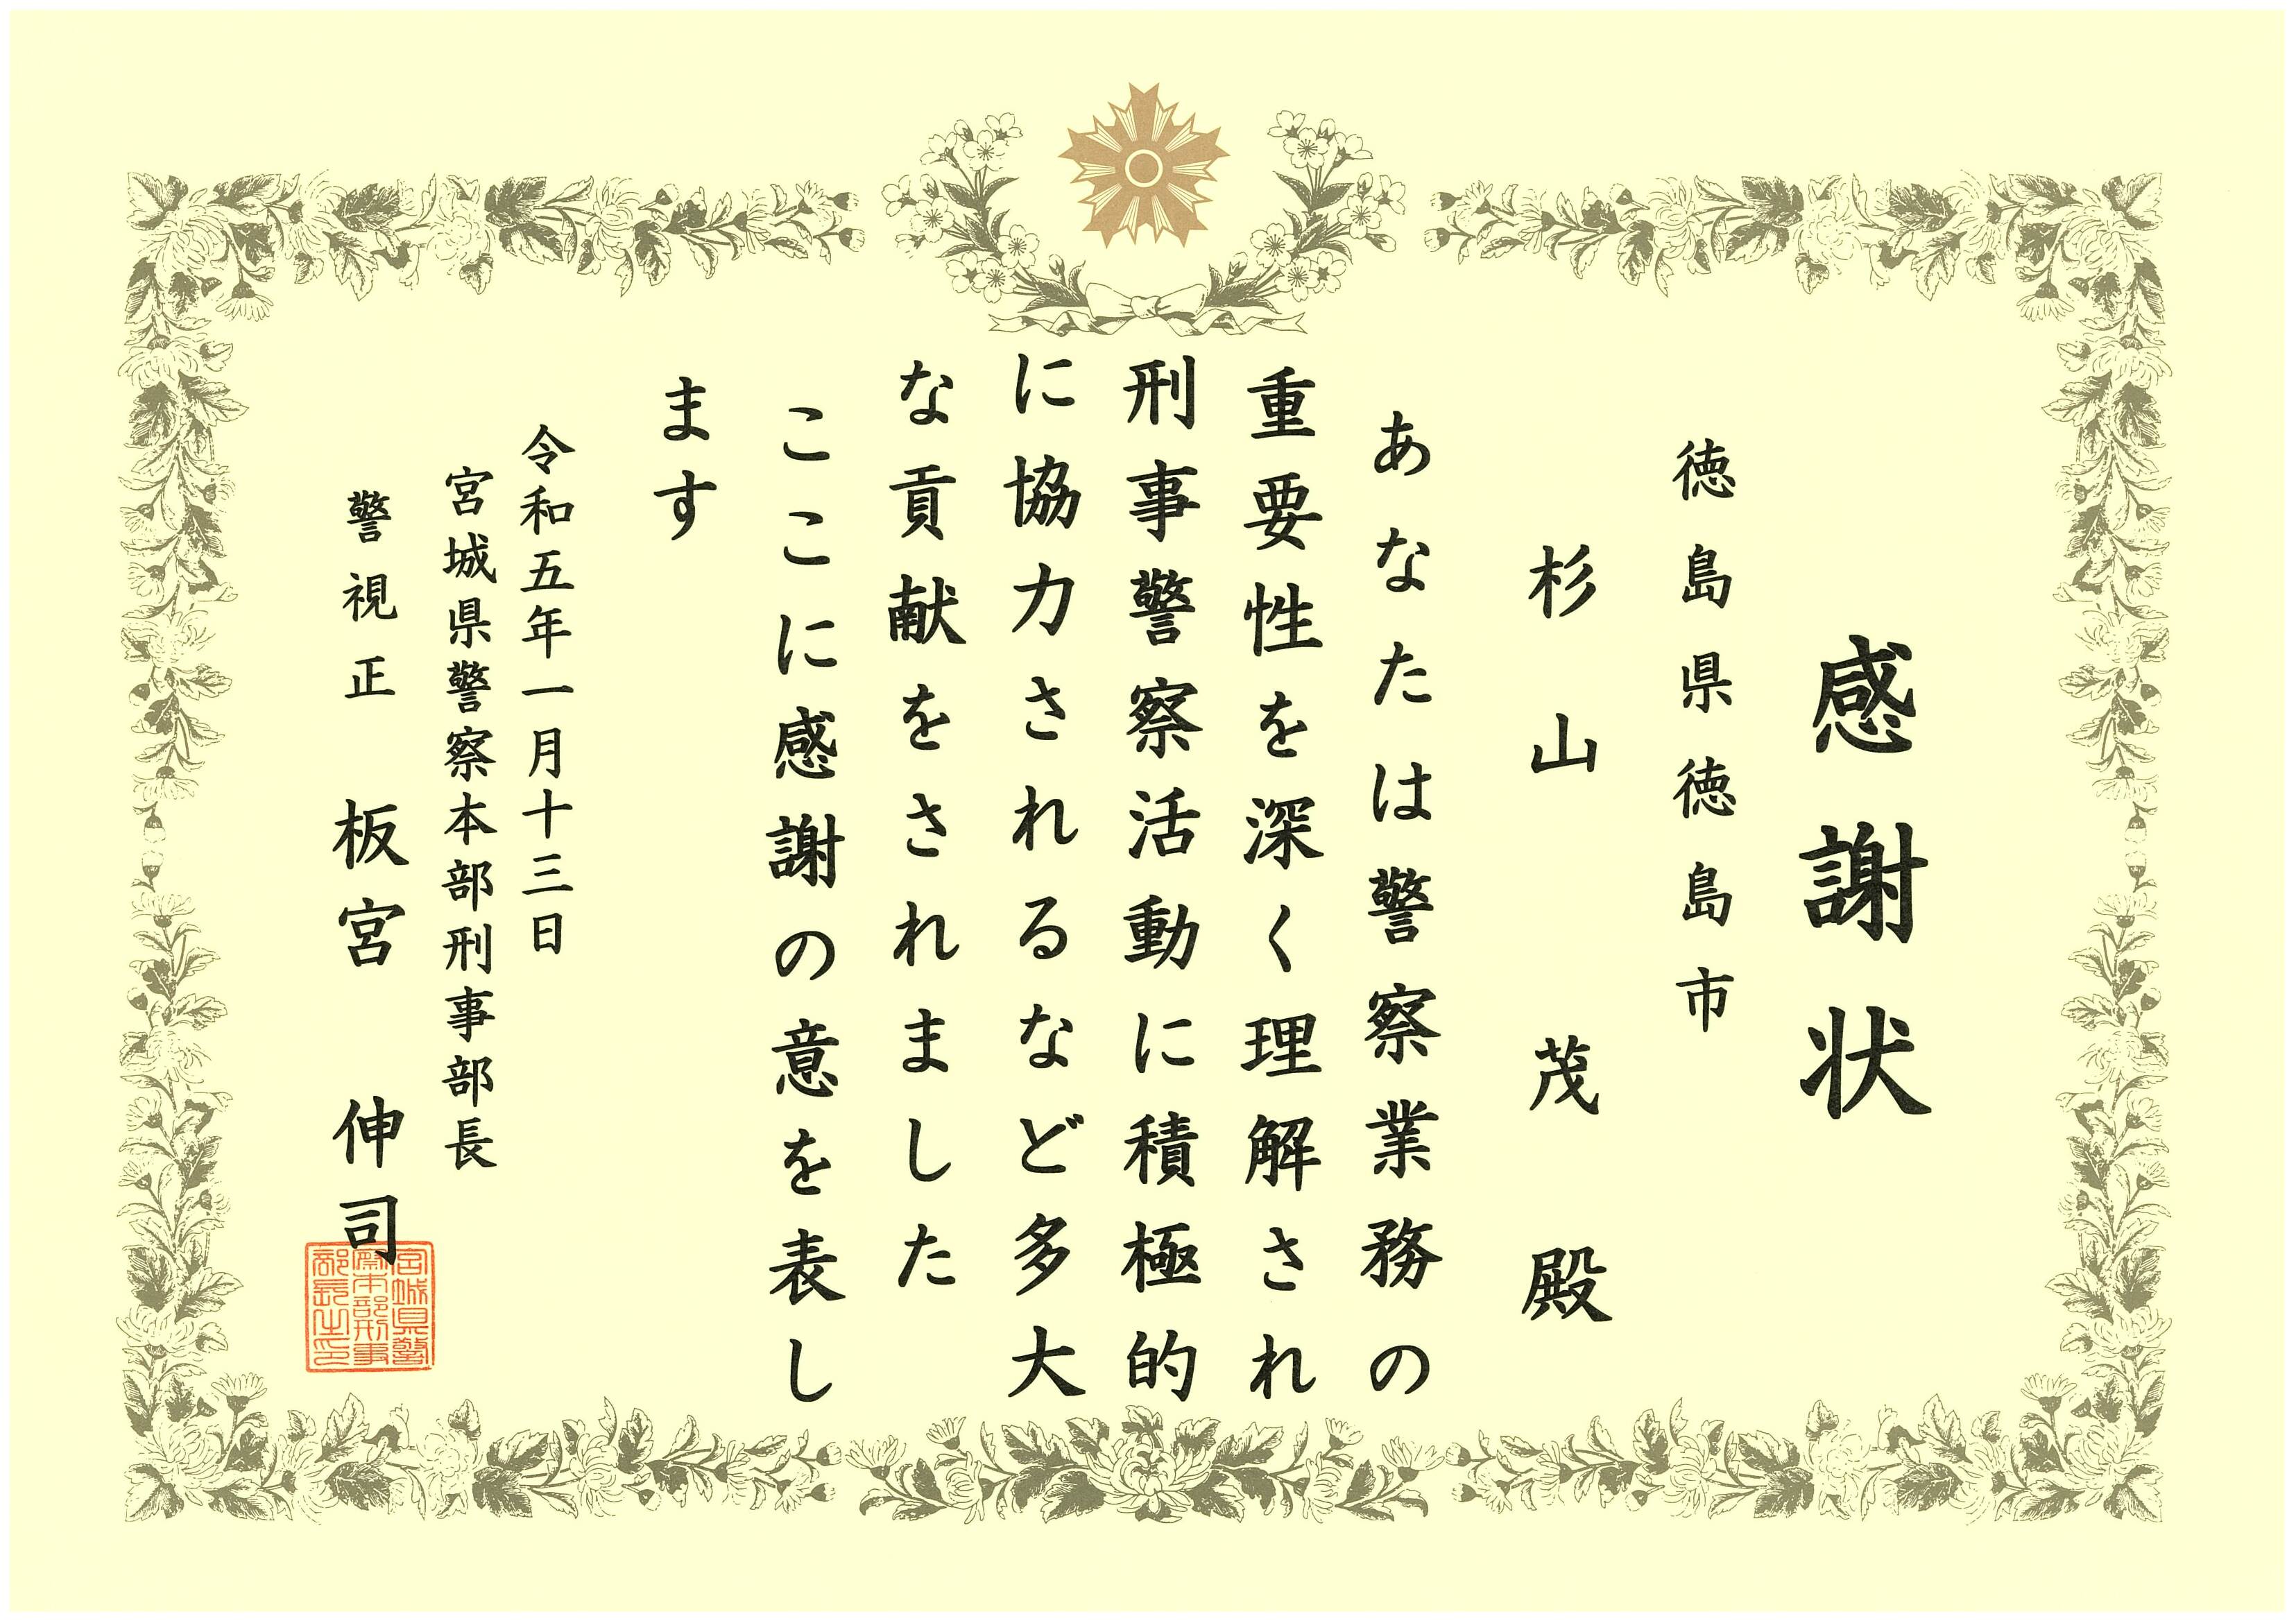 感謝状
徳島県徳島市
杉山茂殿
あなたは警察業務の
重要性を深く理解され
刑事警察活動に積極的
に協力されるなど多大
な貢献をされました
ここに感謝の意を表し
ます
令和五年一月十三日
宮城県警察本部刑事部長
警視正 板宮伸司
宮城県警
察本部刑事
部長之印